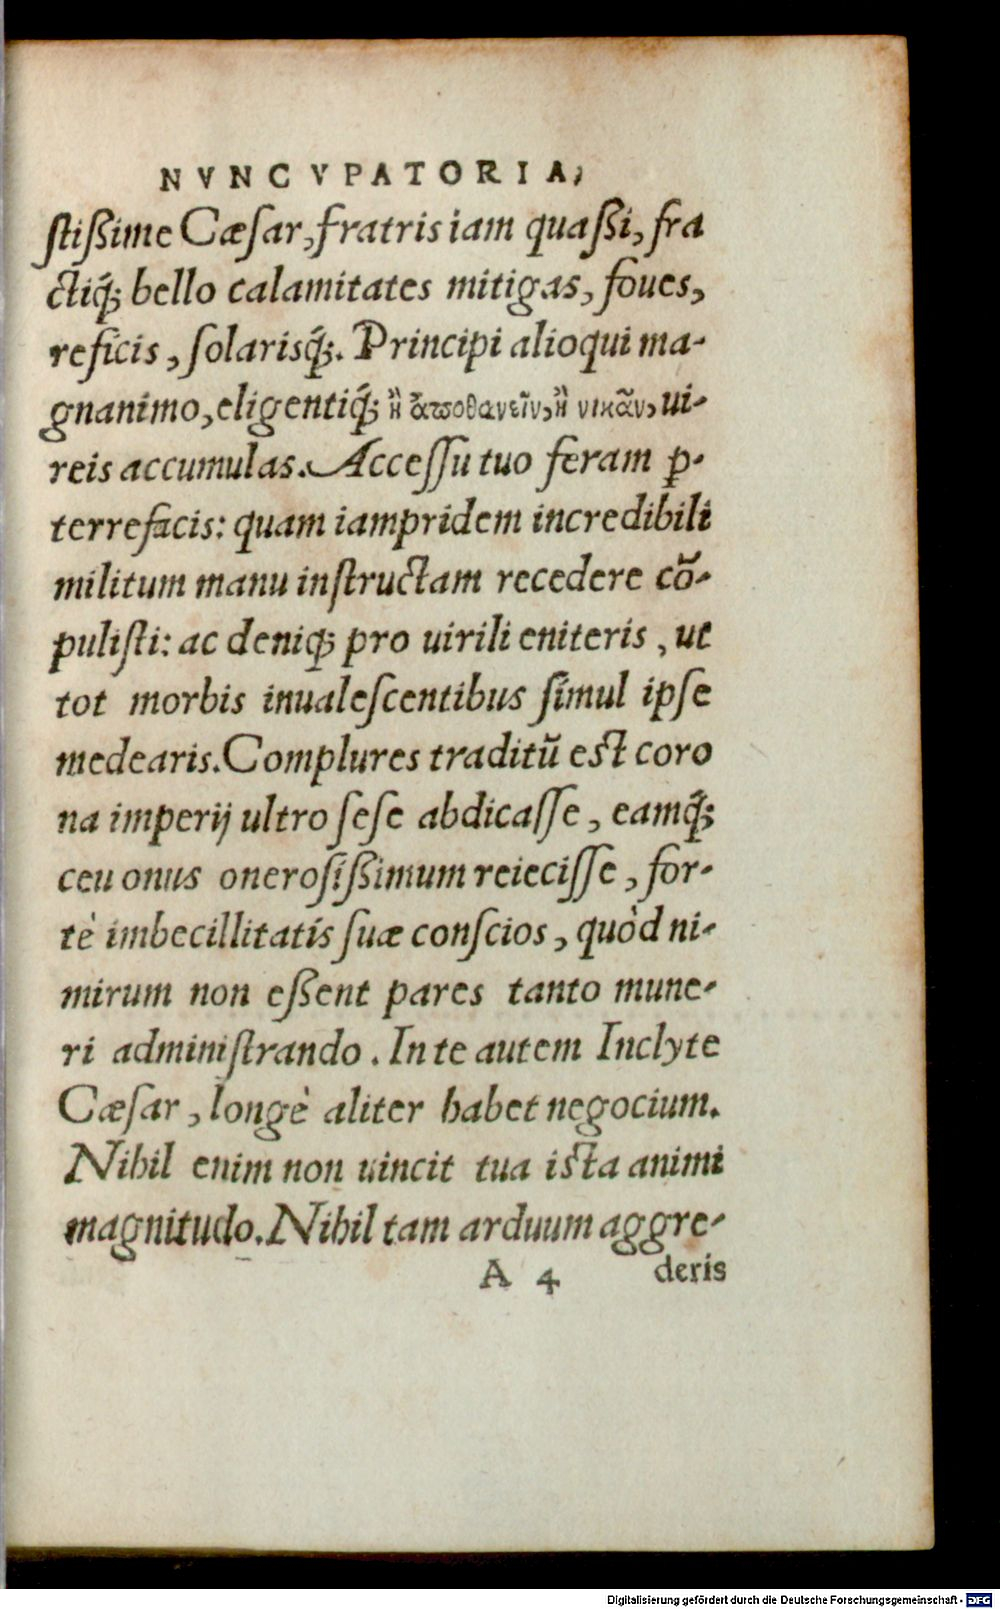 NVNCVPATORIA,
stißime Cæſar, fratris iam quaßi, fra
ctiq́; bello calamitates mitigas, foues,
reficis, ſolarisq́;. Principi alioqui ma-
gnanimo, eligentiq́; ἢ ἀποθανεῖν, ἢ νικᾶν, ui-
reis accumulas. Acceſſu tuo feram ꝑ-
terrefacis: quam iampridem incredibili
militum manu inſtructam recedere cõ-
puliſti: ac deniq; pro uirili eniteris, ut
tot morbis inualeſcentibus ſimul ipſe
medearis. Complures traditũ est coro
na imperij ultro ſeſe abdicaſſe, eamq́;
ceu onus oneroſißimum reieciſſe, for-
tè imbecillitatis ſuæ conſcios, quòd ni-
mirum non eßent pares tanto mune-
ri adminiſtrando. In te autem Inclyte
Cæſar, longè aliter habet negocium.
Nihil enim non uincit tua ista animi
magnitudo. Nihil tam arduum aggre-
A 4 deris
Digitalisierung gefördert durch die Deutsche Forschungsgemeinschaft - DFG